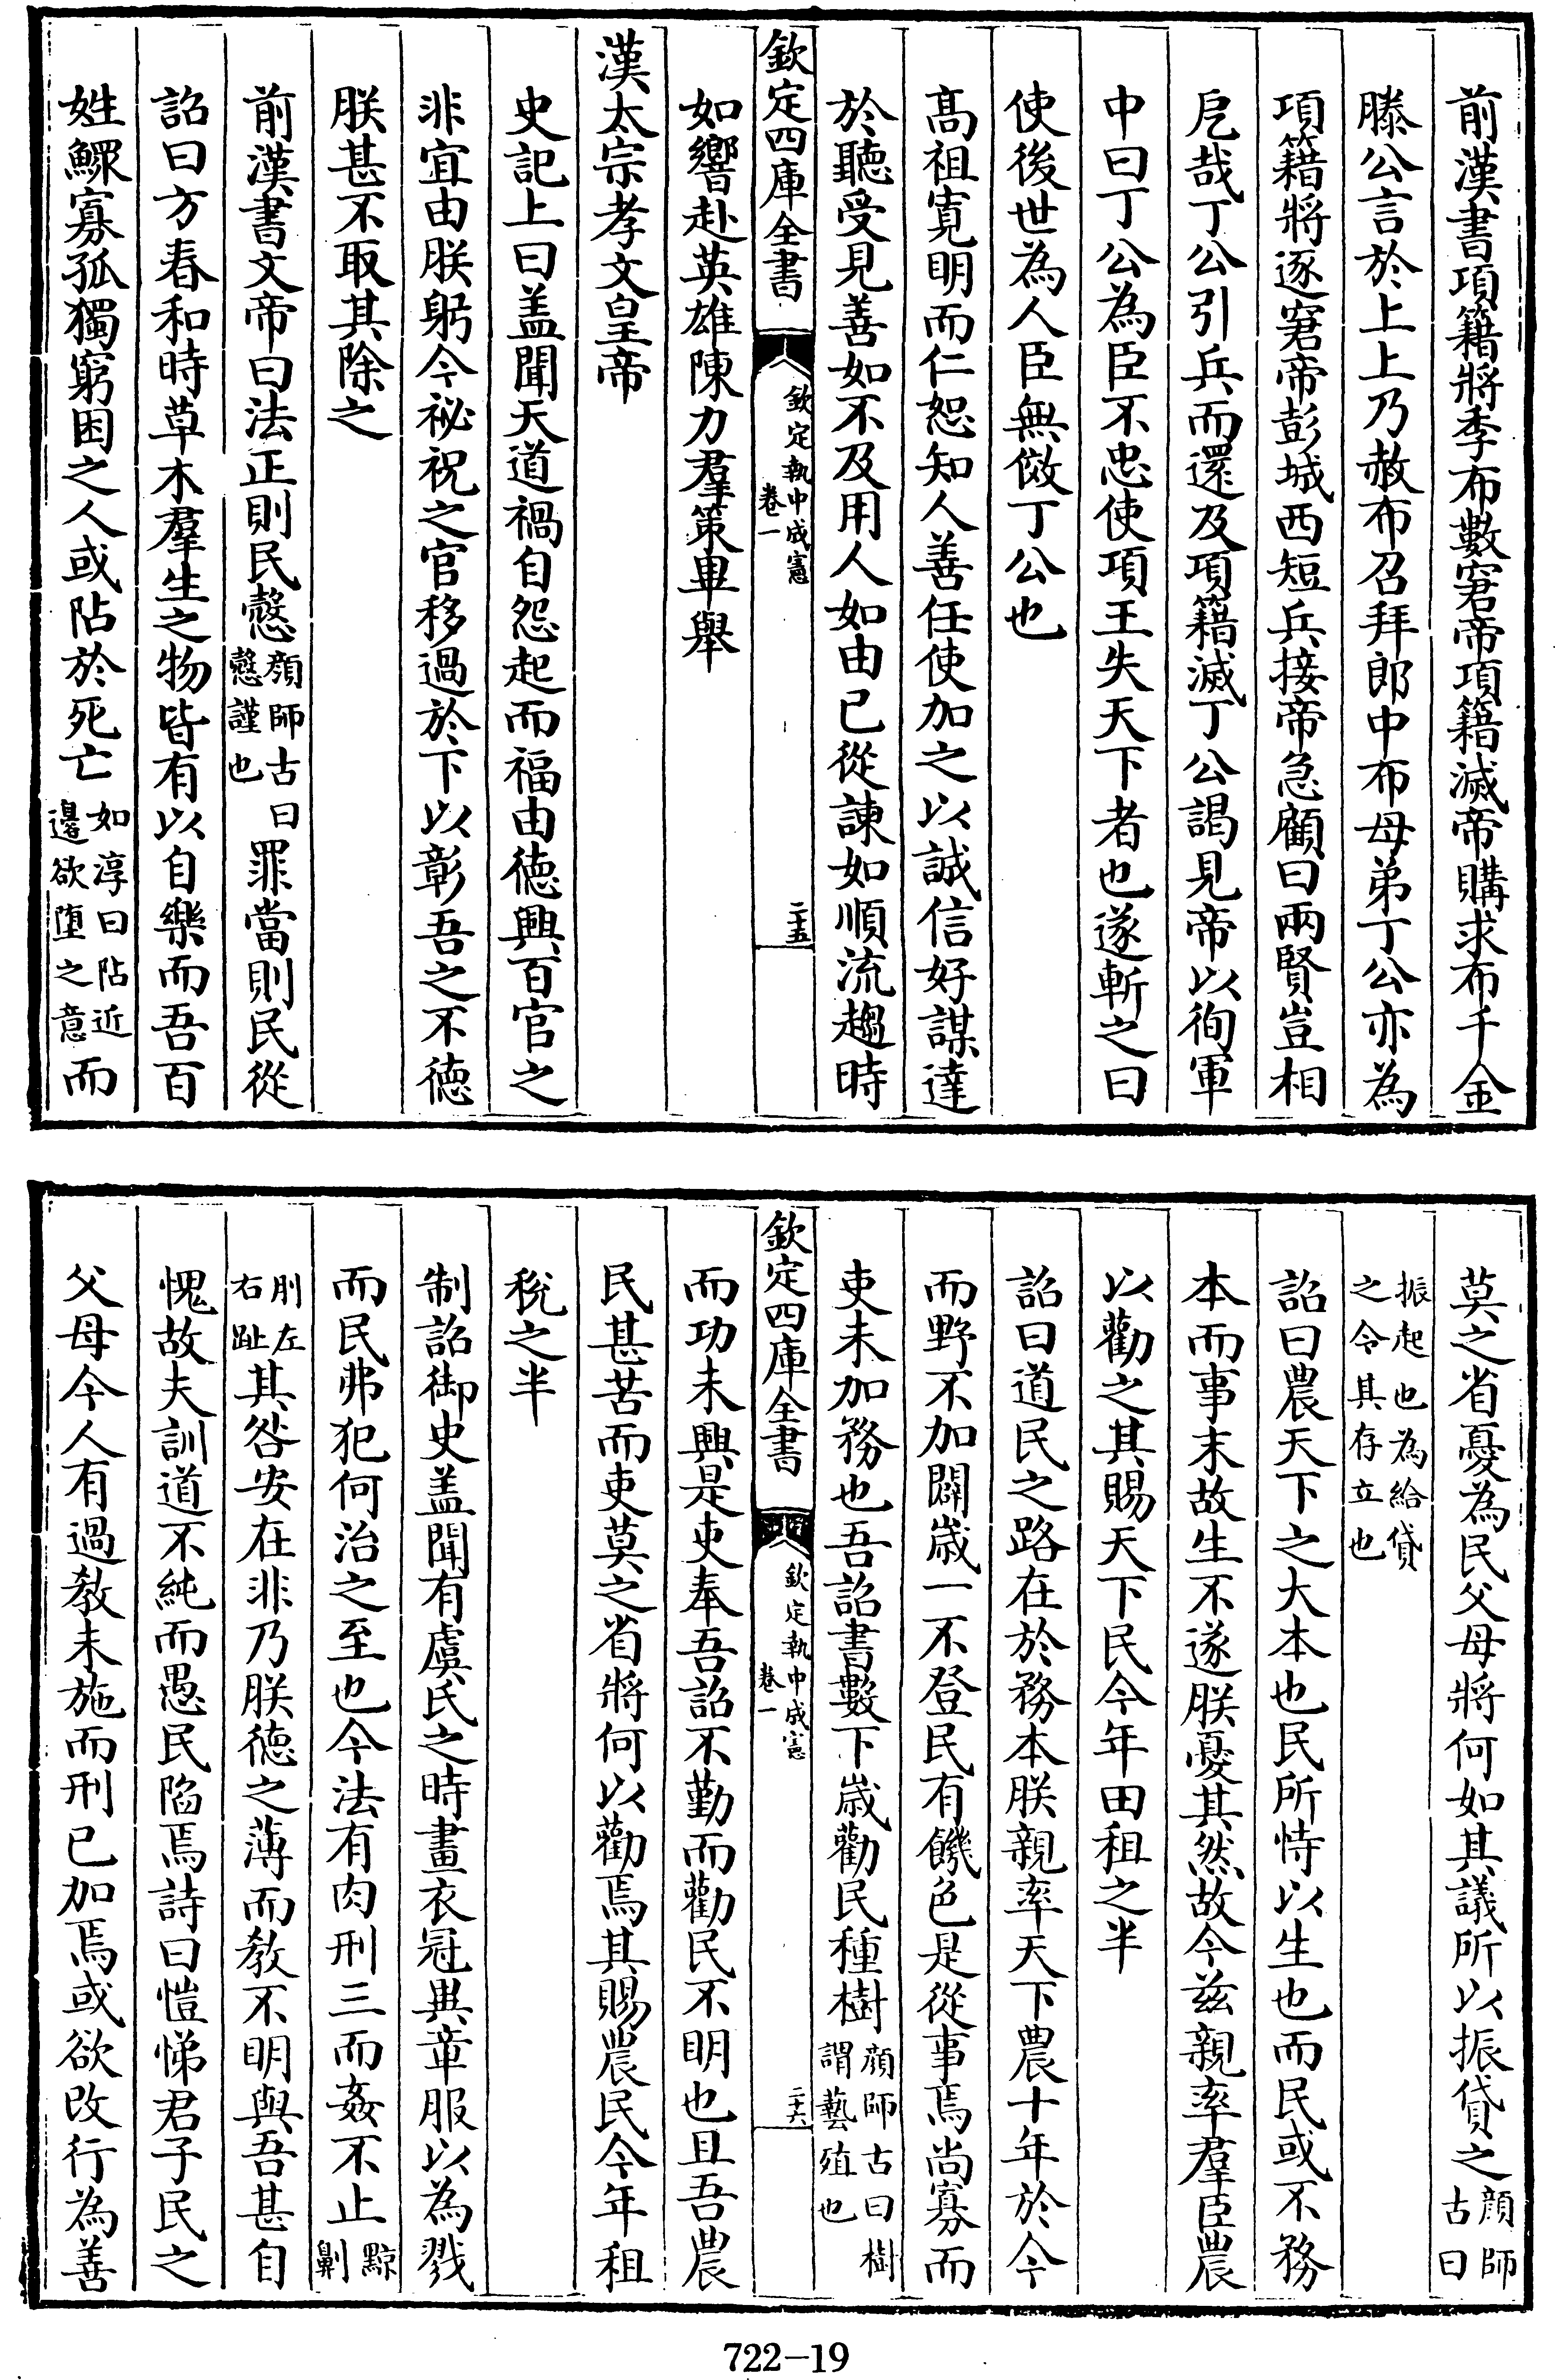 前漢書項籍將季布數窘帝項籍滅帝購求布千金
滕公言於上上乃赦布召拜郎中布母弟丁公亦為
項籍將逐窘帝彭城西短兵接帝急顧曰兩賢豈相
戹哉丁公引兵而還及項籍滅丁公謁見帝以徇軍
中曰丁公為臣不忠使項王失天下者也遂斬之曰
使後世為人臣無傚丁公也
高祖寛明而仁恕知人善任使加之以誠信好謀達
於聽受見善如不及用人如由已從諫如順流趨時
欽定四庫全書
欽定執中成憲
卷一
二十五
如響赴英雄陳力羣策畢舉
漢太宗孝文皇帝
史記上曰盖聞天道禍自怨起而福由徳興百官之
非宜由朕躬今祕祝之官移過於下以彰吾之不徳
朕甚不取其除之
前漢書文帝曰法正則民慤顔師古曰慤謹也罪當則民從
詔曰方春和時草木羣生之物皆有以自樂而吾百
姓鰥寡孤獨窮困之人或阽於死亡如淳曰阽近邉欲堕之意而
莫之省憂為民父母將何如其議所以振貸之顔師古曰
振起也為給貸之令其存立也
詔曰農天下之大本也民所恃以生也而民或不務
本而事末故生不遂朕憂其然故今兹親率羣臣農
以勸之其賜天下民今年田租之半
詔曰道民之路在於務本朕親率天下農十年於今
而野不加闢歳一不登民有饑色是從事焉尚寡而
吏未加務也吾詔書數下歳勸民種樹顔師古曰樹謂藝殖也
欽定四庫全書
欽定執中成憲
卷一
二十六
而功未興是吏奉吾詔不勤而勸民不明也且吾農
民甚苦而吏莫之省將何以勸焉其賜農民今年租
稅之半
制詔御史盖聞有虞氏之時畫衣冠異章服以為戮
而民弗犯何治之至也今法有肉刑三而姦不止黥劓
刖左右趾其咎安在非乃朕徳之薄而敎不明與吾甚自
愧故夫訓道不純而愚民陷焉詩曰愷悌君子民之
父母今人有過敎未施而刑已加焉或欲改行為善
722-19